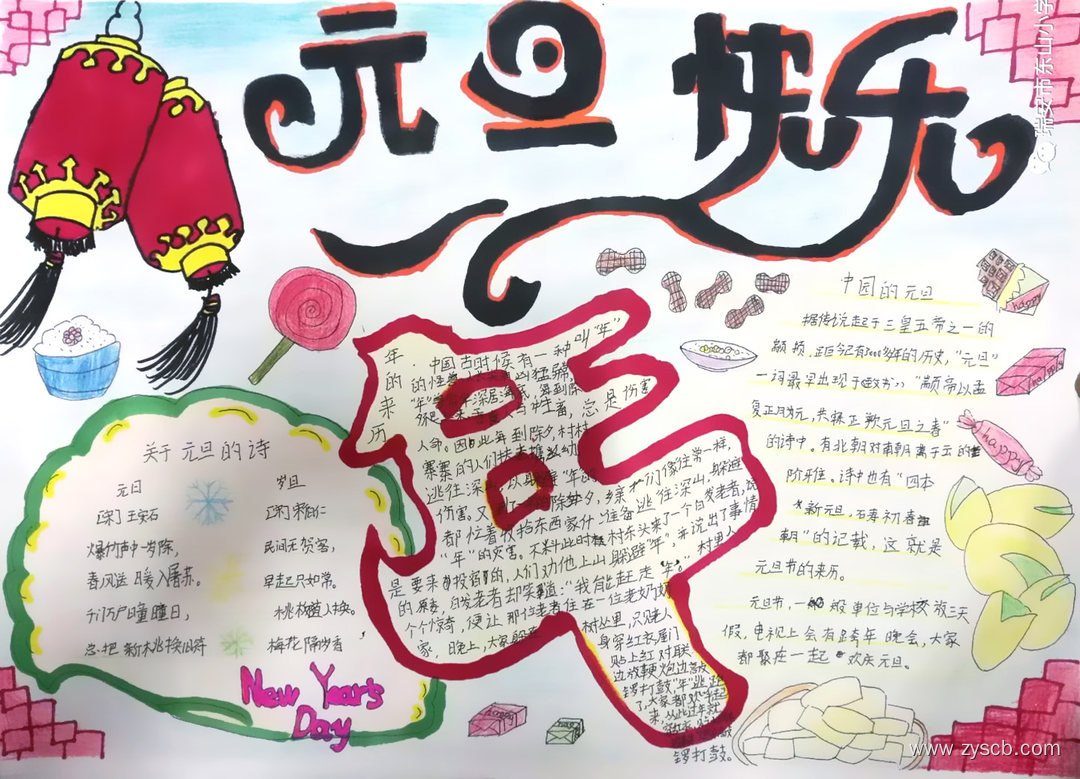 元旦快乐
瑞安市东山小学
关于元旦的诗
元日
[宋]王安石
爆竹声中一岁除,
春风送暖入屠苏。
千门万户曈曈日,
总把新桃换旧符
岁旦
[宋]
民间无贺客,
早起只如常。
桃板随人换。
梅花隔岁香
New Year's
Day
年的来历
中国古时候有一种叫“年”
总是伤害
人命。因此每到除夕,村村
寨寨的人们扶老携幼
逃往深山,以躲避“年”的
伤害。又到了一年的除夕,乡亲们像往常一样,
都忙着收拾东西家什准备逃往深山,躲避
“年”的灾害。不料此时村东头来了一个白发老者,
是要来投宿的,人们劝他上山躲避“年”,并说出了事情
的原委,白发老者却笑道:“我能赶走“年”。”村里人
个个惊奇,便让那位老者住在一位老奶奶
家,晚上,大家躲在
树丛里,只见老人
身穿红衣,屋门
贴上红对联
边放鞭炮边敲
锣打鼓,“年”逃跑
了,大家都欢呼起
来,从此过年
锣打鼓。
中国的元旦
据传说起于三皇五帝之一的
颛顼,距今已有3000多年的历史,“元旦”
一词最早出现于《晋书》:“颛帝以孟
复正月为元,其实正朔元旦之春”
的诗中。有北朝对南朝萧子云的
阶雅。诗中也有“四本
新元旦,万寿初春
朝”的记载,这就是
元旦节的来历。
元旦节,一般单位与学校放三天
假,电视上会有跨年晚会,大家
都聚在一起欢庆元旦。
happy
happy
happy
happy
happy
www.zyscb.com